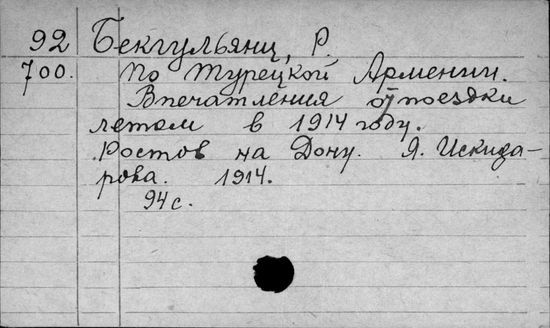 92 Бекгульянц, Р.
700. По Турецкой Армении.
Впечатления от поездки
летом в 1914 году.
Ростов на Дону. Я. Искида-
рова. 1914.
94 с.